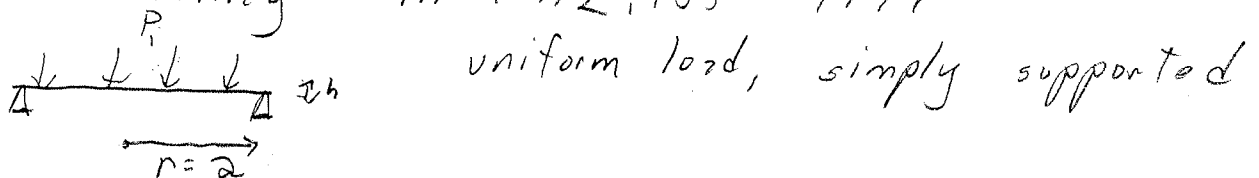 P₁
uniform load, simply supported
h
r = a